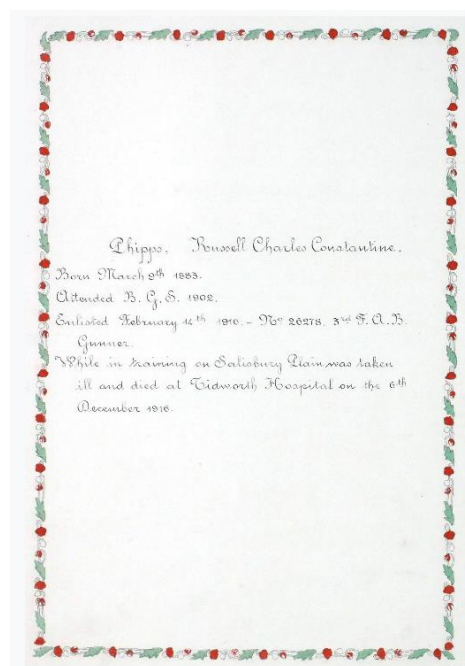 Phipps, Russell Charles Constantine.
Born March 9th 1883.
Attended B. G. S. 1902.
Enlisted February 14th 1916. - No 26278. 3rd F. A. B.
Gunner.
While in training on Salisbury Plain was taken
ill and died at Tidworth Hospital on the 6th
December 1916.